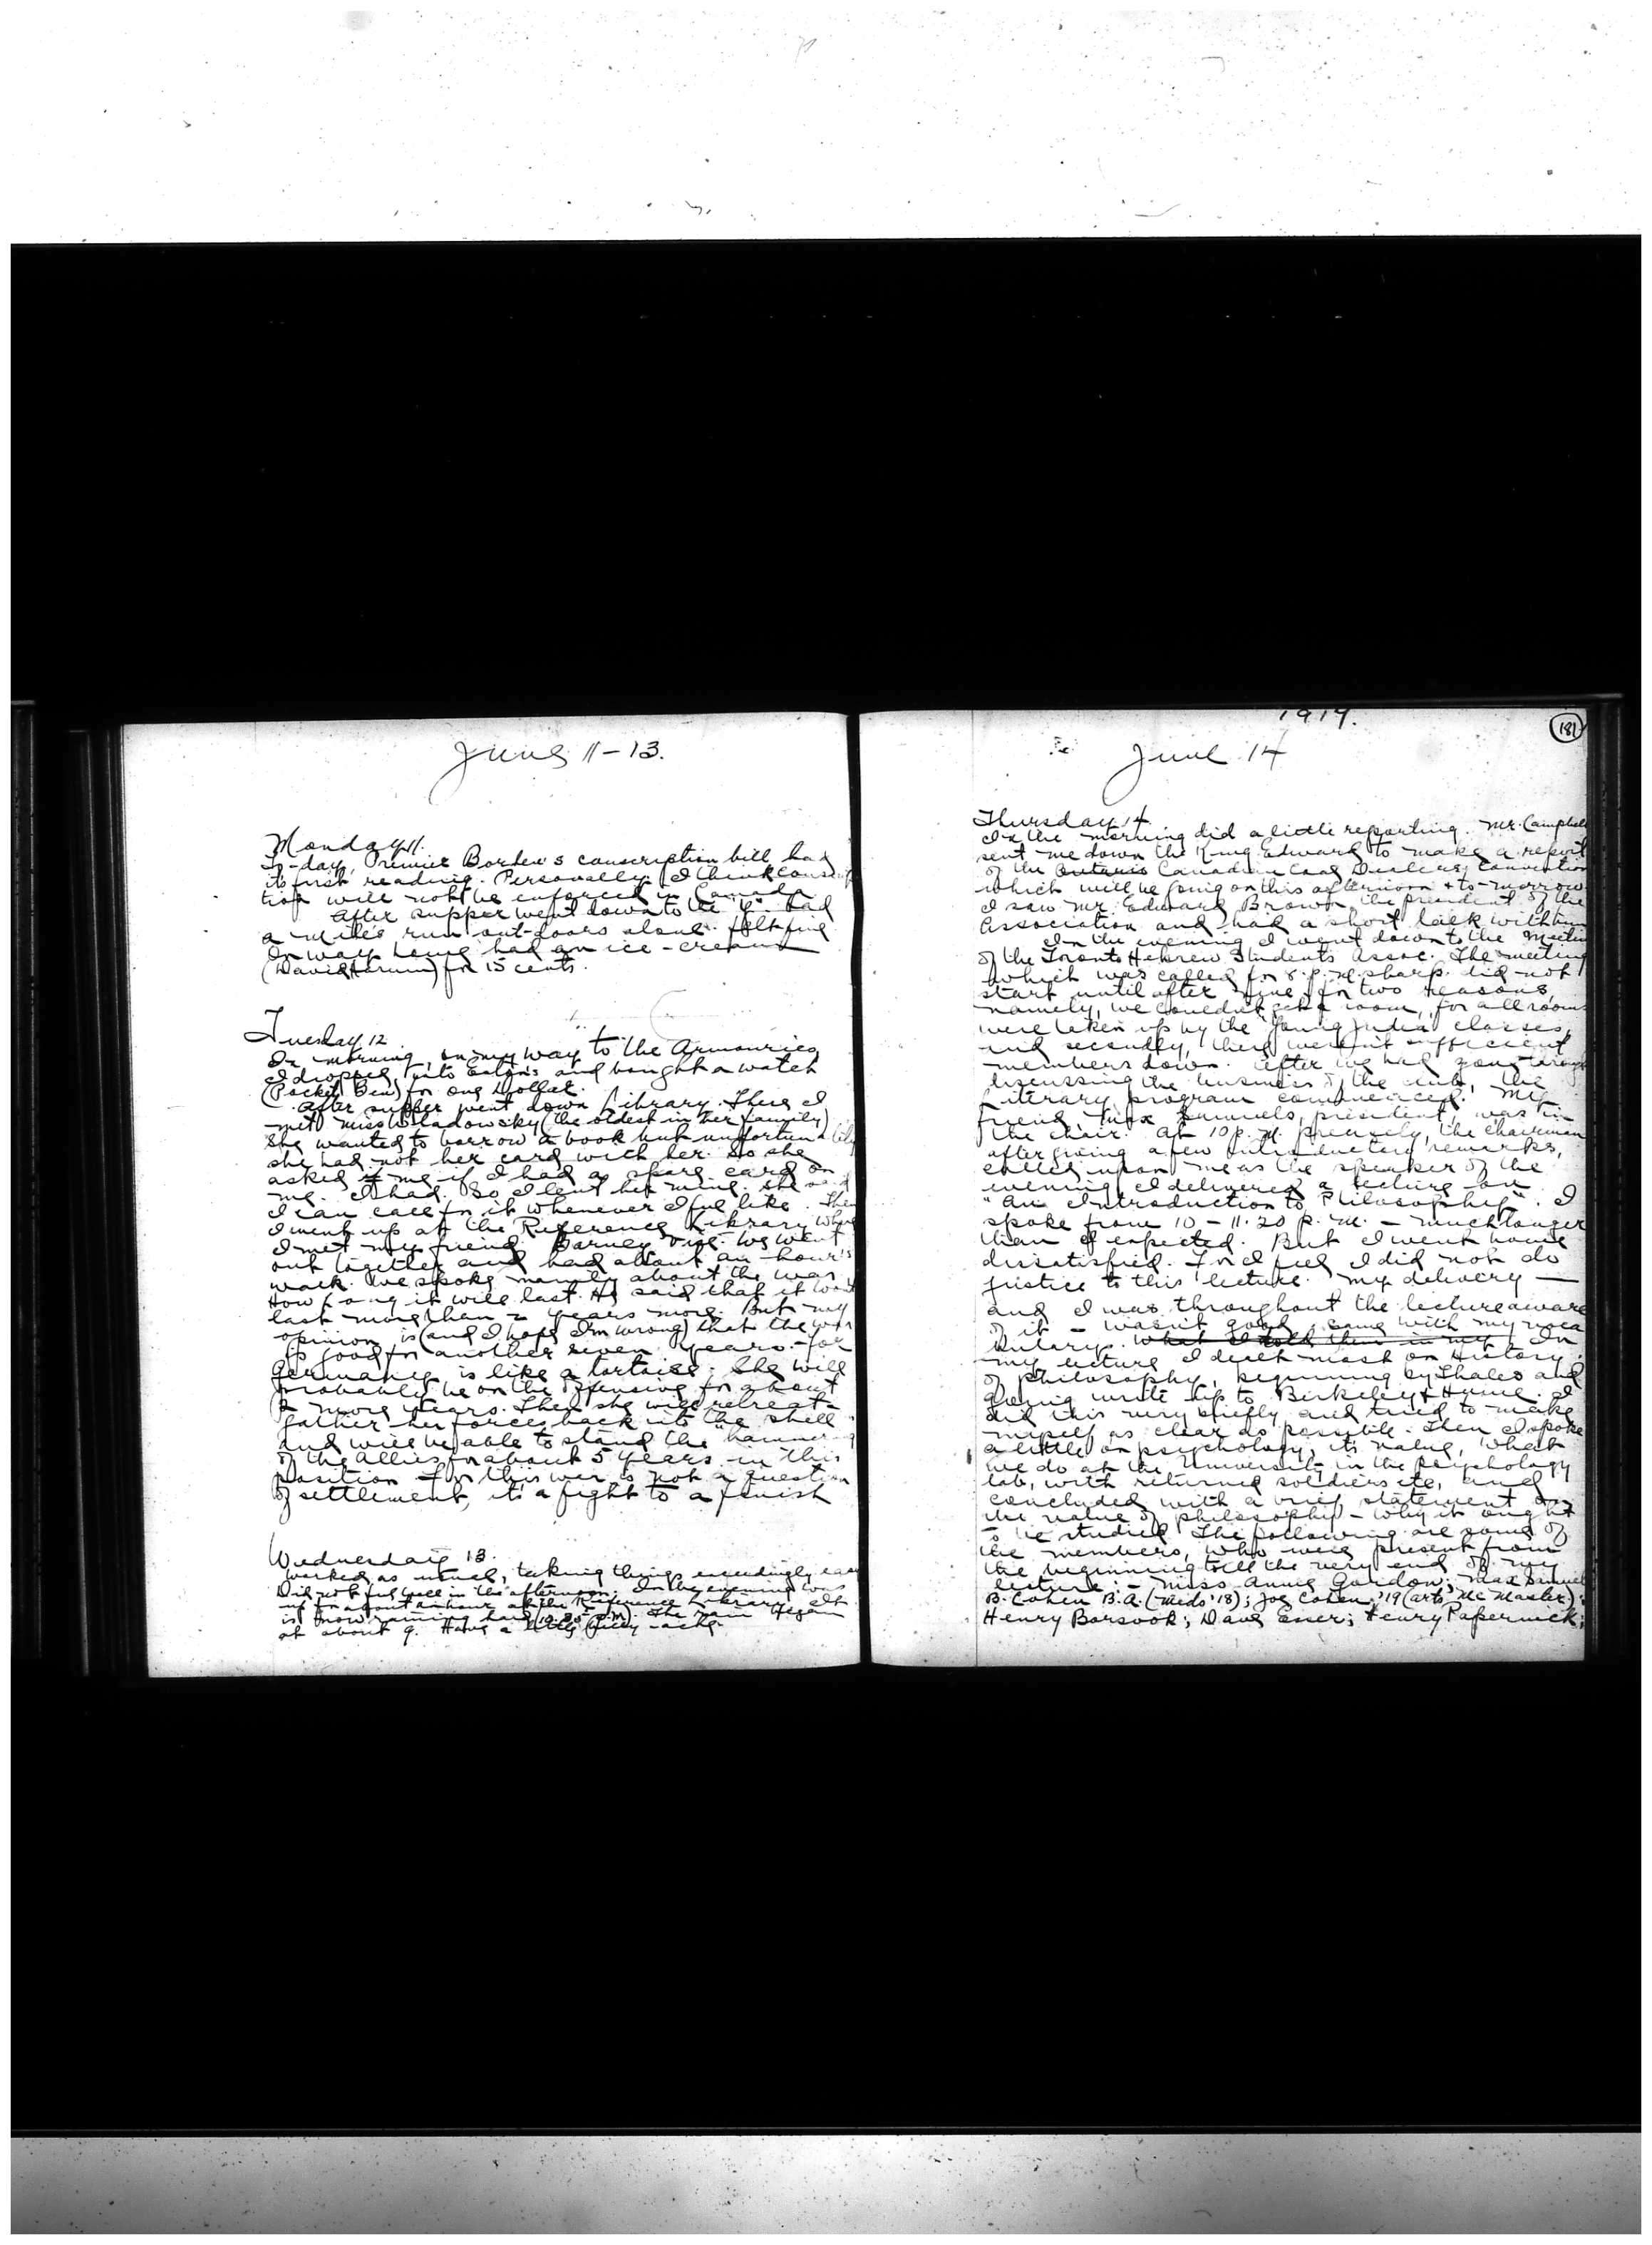 June 11-13.
Monday 11.
To-day, Premier Borden's conscription bill had
its first reading. Personally, I think conscrip
tion will not be enforced in Canada.
After supper went down to the "Y". Had
a mile's run out-doors alone. Felt fine
On way home had an ice-cream
(David Harum) for 15 cents.
Tuesday 12
In morning, on my way to the Armouries
I dropped into Eaton's and bought a watch
(Pocket Ben) for one Dollar.
After supper went down Library. There I
met Miss Wladowsky (the oldest in her family)
She wanted to borrow a book but unfortunately
she had not her card with her. So she
asked if me if I had a spare card on
me. I had. So I lent her mine. She said
I can call for it whenever I feel like. Then
I went up at the Reference Library where
I met my friend Barney. We went
out together and had about an hour's
walk. We spoke mainly about the war.
How long it will last. He said that it won't
last more than 2 years more. But my
opinion is (and I hope I'm wrong) that the war
is good for another seven years - for
Germany is like a tortoise. She will
probably be on the offensive for about
2 more years. Then she will retreat -
gather her forces back into the shell
and will be able to stand the hammering
of the Allies for about 5 years in this
position - for this war is not a question
of settlement, it's a fight to a finish
Wednesday 13.
Worked as usual, taking things exceedingly easy
Did not feel well in the afternoon. In the evening was
up for about an hour at the Reference Library. It
is now raining hard (10.20 p.m). The rain began
at about 9. Have a little belly-ache.
1917.
181
June 14
Thursday 14.
In the morning did a little reporting. Mr. Campbell
sent me down the King Edward to make a report
of the Ontario Canadian Coal Dealers Convention
which will be going on this afternoon & to-morrow
I saw Mr. Edward Brown the president of the
Association and had a short talk with him
In the evening I went down to the meeting
of the Toronto Hebrew Students Assoc. The meeting
which was called for 8. p.m. sharp did not
start until after nine for two reasons,
namely, we couldn't get a room, for all rooms
were taken up by the "Young Judea" classes,
and secondly, there weren't sufficient
members down. After we had gone through
discussing the business of the club, the
Literary program commenced. My
friend, Max Samuels, president, was in
the chair. At 10 p.m. precisely, the chairman
after giving a few introductory remarks,
called upon me as the speaker of the
evening. I delivered a lecture on
"An Introduction to Philosophy". I
spoke from 10 - 11.20 p.m. - much longer
than I expected. But I went home
dissatisfied. For I feel I did not do
justice to this lecture. My delivery -
and I was throughout the lecture aware
of it - wasn't good, same with my voca
bulary. What I told them in my In
my lecture I dealt most on History
of philosophy, beginning by Thales and
going write up to Berkeley & Hume. I
did this very briefly and tried to make
myself as clear as possible. Then I spoke
a little on psychology, its value, what
we do at the University in the psychology
lab, with returned soldiers etc, and
concluded with a brief statement on
the value of philosophy - why it ought
to be studied. The following are some of
the members, who were present from
the beginning till the very end of my
lecture: - Miss Annie Gordon; Max Samuels
B. Cohen B.A. (Meds '18); Joe Cohen '19 (arts McMaster);
Henry Borsook; Dave Esser; Henry Papernick;